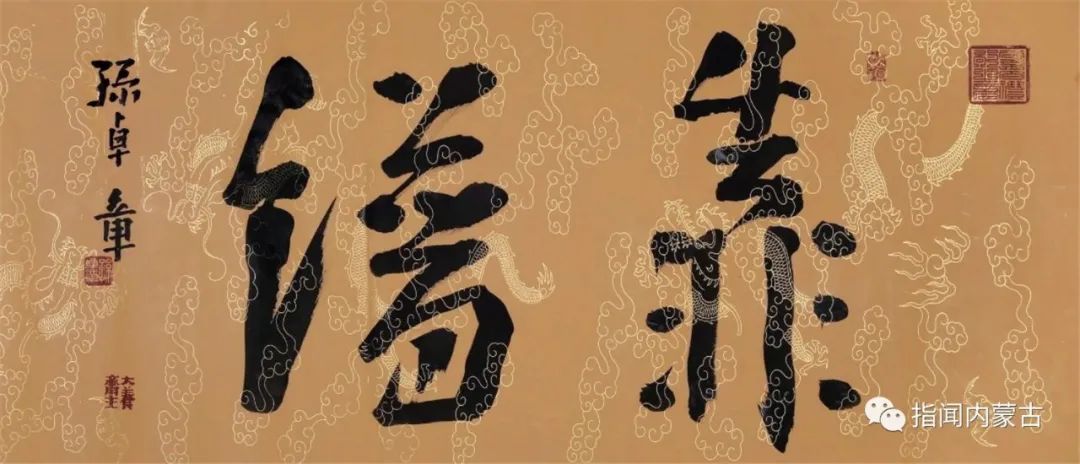 靠谱
孫卓章
指闻内蒙古